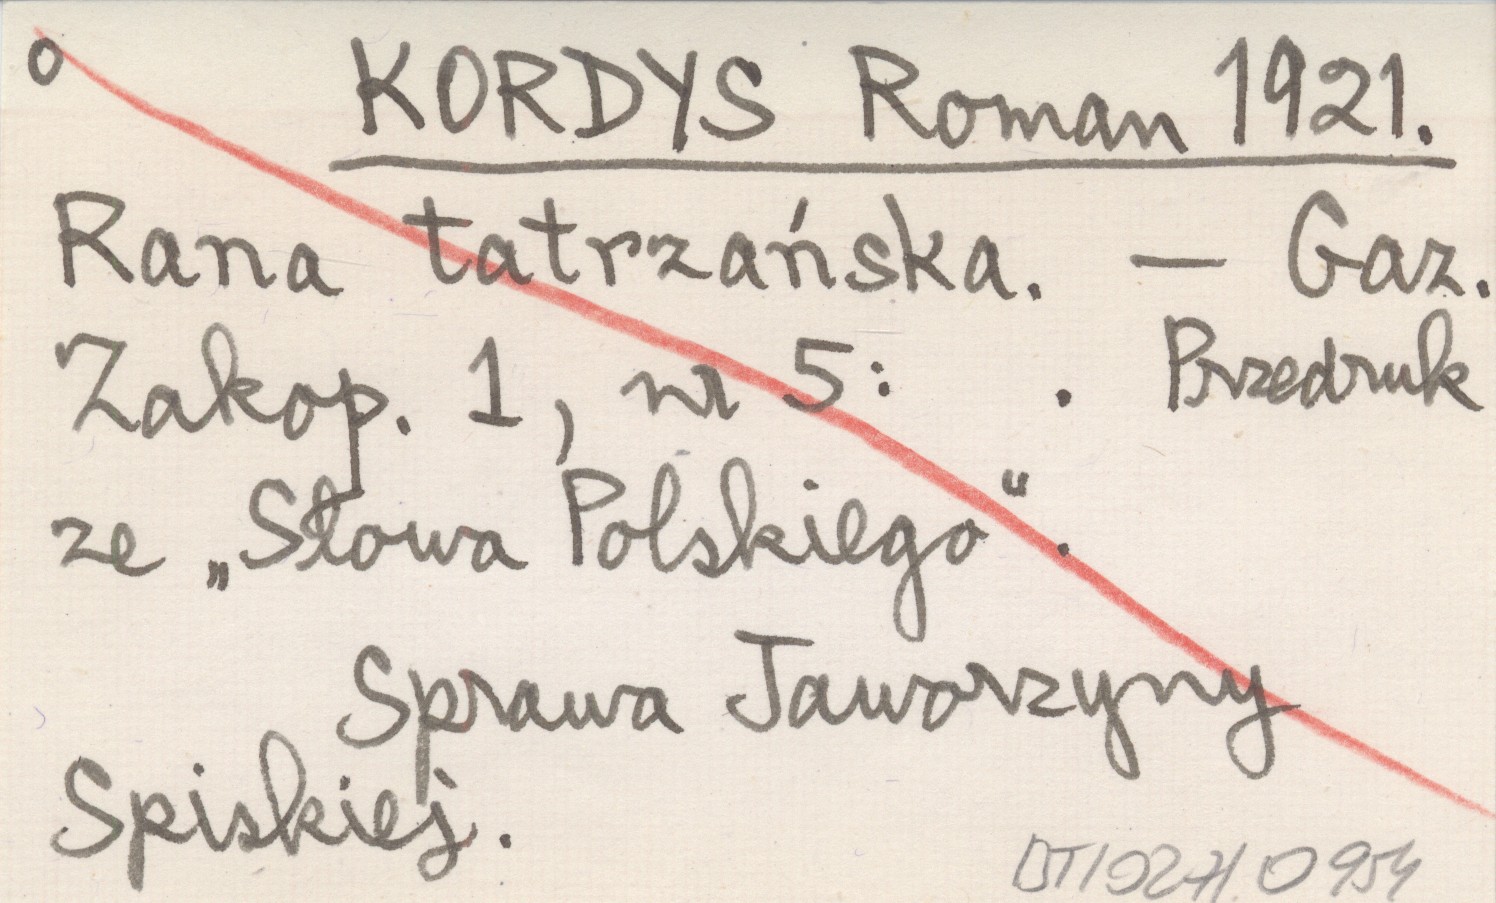 o KORDYS Roman 1921.
Rana tatrzańska. — Gaz.
Zakop. 1, nr 5: . Przedruk
ze „Słowa Polskiego“.
Sprawa Jaworzyny
Spiskiej.